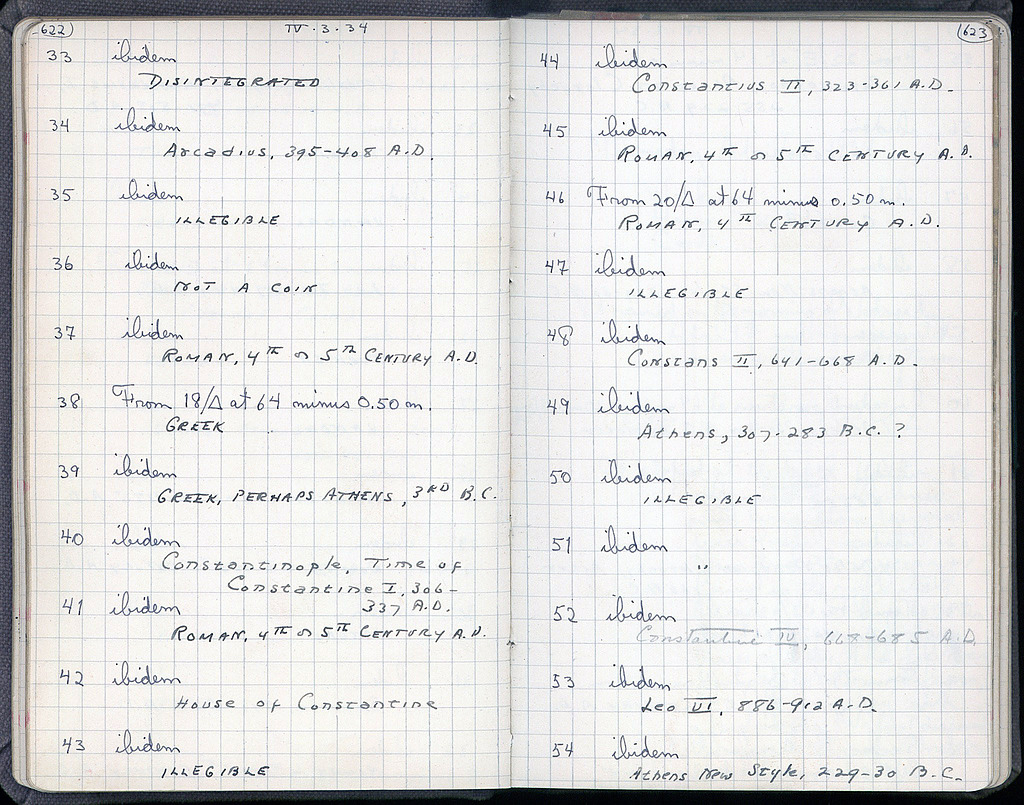 622
IV · 3 · 34
33 ibidem
DISINTEGRATED
34 ibidem
Arcadius, 395-408 A.D.
35 ibidem
ILLEGIBLE
36 ibidem
NOT A COIN
37 ibidem
ROMAN, 4TH or 5TH CENTURY A.D.
38 From 18/Δ at 64 minus 0.50 m.
GREEK
39 ibidem
GREEK, PERHAPS ATHENS, 3RD B.C.
40 ibidem
Constantinople, Time of
Constantine I, 306-
41 ibidem 337 A.D.
ROMAN, 4TH or 5TH CENTURY A.D.
42 ibidem
House of Constantine
43 ibidem
ILLEGIBLE
623
44 ibidem
Constantius II, 323-361 A.D.
45 ibidem
ROMAN, 4TH or 5TH CENTURY A.D.
46 From 20/Δ at 64 minus 0.50 m.
ROMAN, 4TH CENTURY A.D.
47 ibidem
ILLEGIBLE
48 ibidem
Constans II, 641-668 A.D.
49 ibidem
Athens, 307-283 B.C. ?
50 ibidem
ILLEGIBLE
51 ibidem
"
52 ibidem
Constantine IV, 668-685 A.D.
53 ibidem
Leo VI, 886-912 A.D.
54 ibidem
Athens New Style, 229-30 B.C.